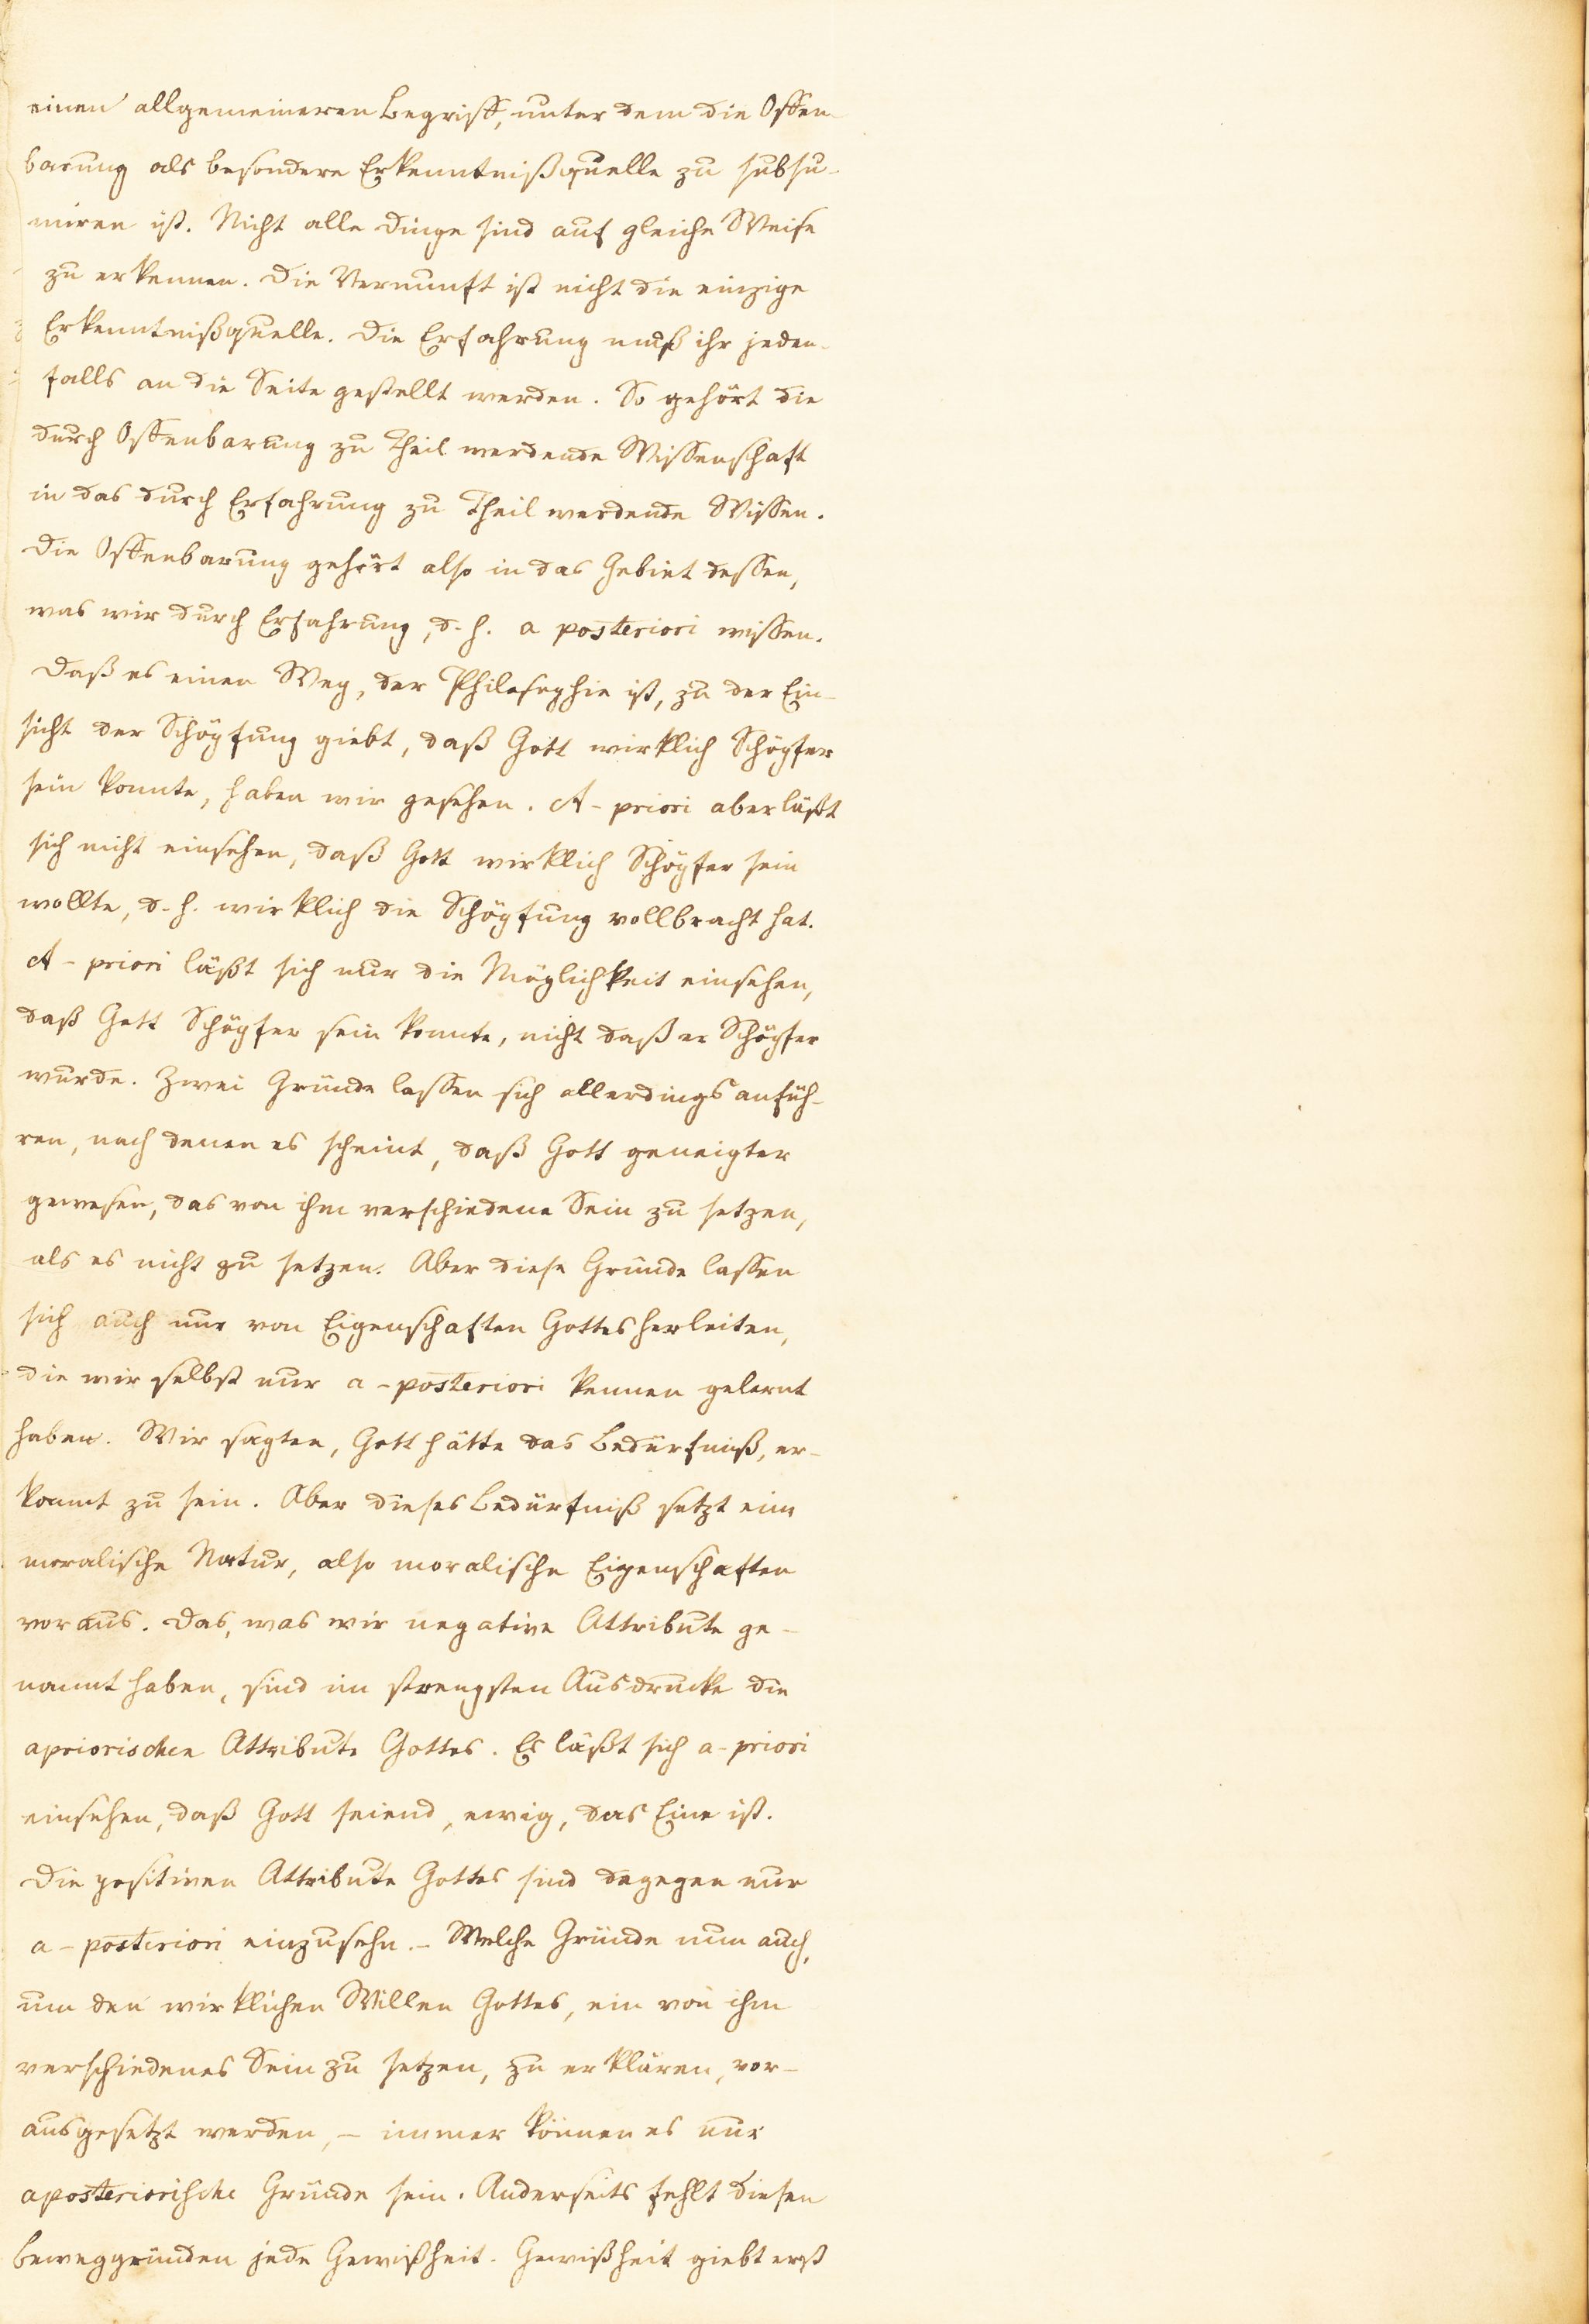 einen allgemeineren Begriff, unter dem die Offen-
barung als besondere Erkenntnißquelle zu subsu-
miren ist. Nicht alle Dinge sind auf gleiche Weise
zu erkennen. Die Vernunft ist nicht die einzige
Erkenntnißquelle. Die Erfahrung muß ihr jeden-
falls an die Seite gestellt werden. So gehört die
durch Offenbarung zu Theil werdende Wissenschaft
in das durch Erfahrung zu Theil werdende Wissen.
Die Offenbarung gehört also in das Gebiet dessen,
was wir durch Erfahrung, d. h. a posteriori wissen.
Daß es einen Weg, der Philosophie ist, zu der Ein-
sicht der Schöpfung giebt, daß Gott wirklich Schöpfer
sein konnte, haben wir gesehen. A-priori aber läßt
sich nicht einsehen, daß Gott wirklich Schöpfer sein
wollte, d. h. wirklich die Schöpfung vollbracht hat.
A-priori läßt sich nur die Möglichkeit einsehen,
daß Gott Schöpfer sein konnte, nicht daß er Schöpfer
wurde. Zwei Gründe lassen sich allerdings anfüh-
ren, nach denen es scheint, daß Gott geneigter
gewesen, das von ihm verschiedene Sein zu setzen,
als es nicht zu setzen. Aber diese Gründe lassen
sich auch nur von Eigenschaften Gottes herleiten,
die wir selbst nur a-posteriori kennen gelernt
haben. Wir sagten, Gott hätte das Bedürfniß, er-
kannt zu sein. Aber dieses Bedürfniß setzt eine
moralische Natur, also moralische Eigenschaften
voraus. Das, was wir negative Attribute ge-
nannt haben, sind im strengsten Ausdrucke die
apriorischen Attribute Gottes. Es läßt sich a-priori
einsehen, daß Gott seiend, ewig, das Eine ist.
Die positiven Attribute Gottes sind dagegen nur
a-posteriori einzusehn. – Welche Gründe nun auch,
um den wirklichen Willen Gottes, ein von ihm
verschiedenes Sein zu setzen, zu erklären, vor-
ausgesetzt werden, – immer können es nur
aposteriorische Gründe sein. Anderseits fehlt diesen
Beweggründen jede Gewißheit. Gewißheit giebt erst